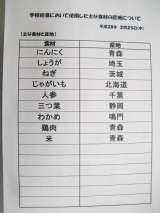 学校給食において使用した主な食材の産地について
平成28年 2月25日(木)
【主な食材と産地】
食材 産地
にんにく 青森
しょうが 埼玉
ねぎ 茨城
じゃがいも 北海道
人参 千葉
三つ葉 静岡
わかめ 鳴門
鶏肉 青森
米 青森